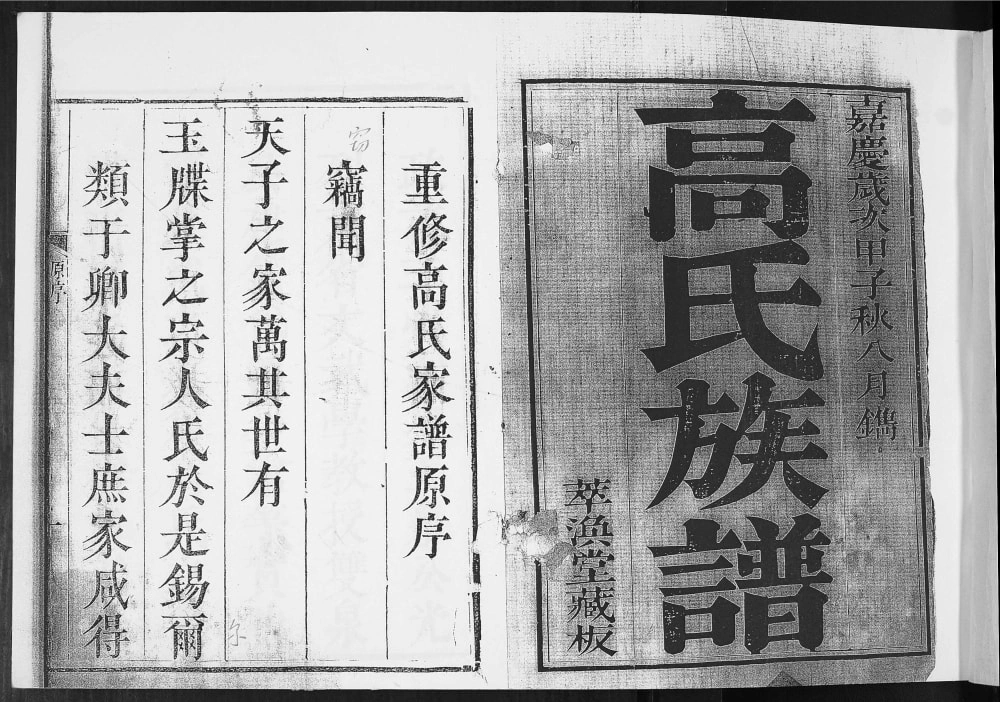 嘉慶歲次甲子秋八月鐫
高氏族譜
萃渙堂藏板
重修高氏家譜原序
竊聞
窃
天子之家萬其世有
玉牒掌之宗人氏於是錫爾
尔
類于卿大夫士庶家咸得
原序
一